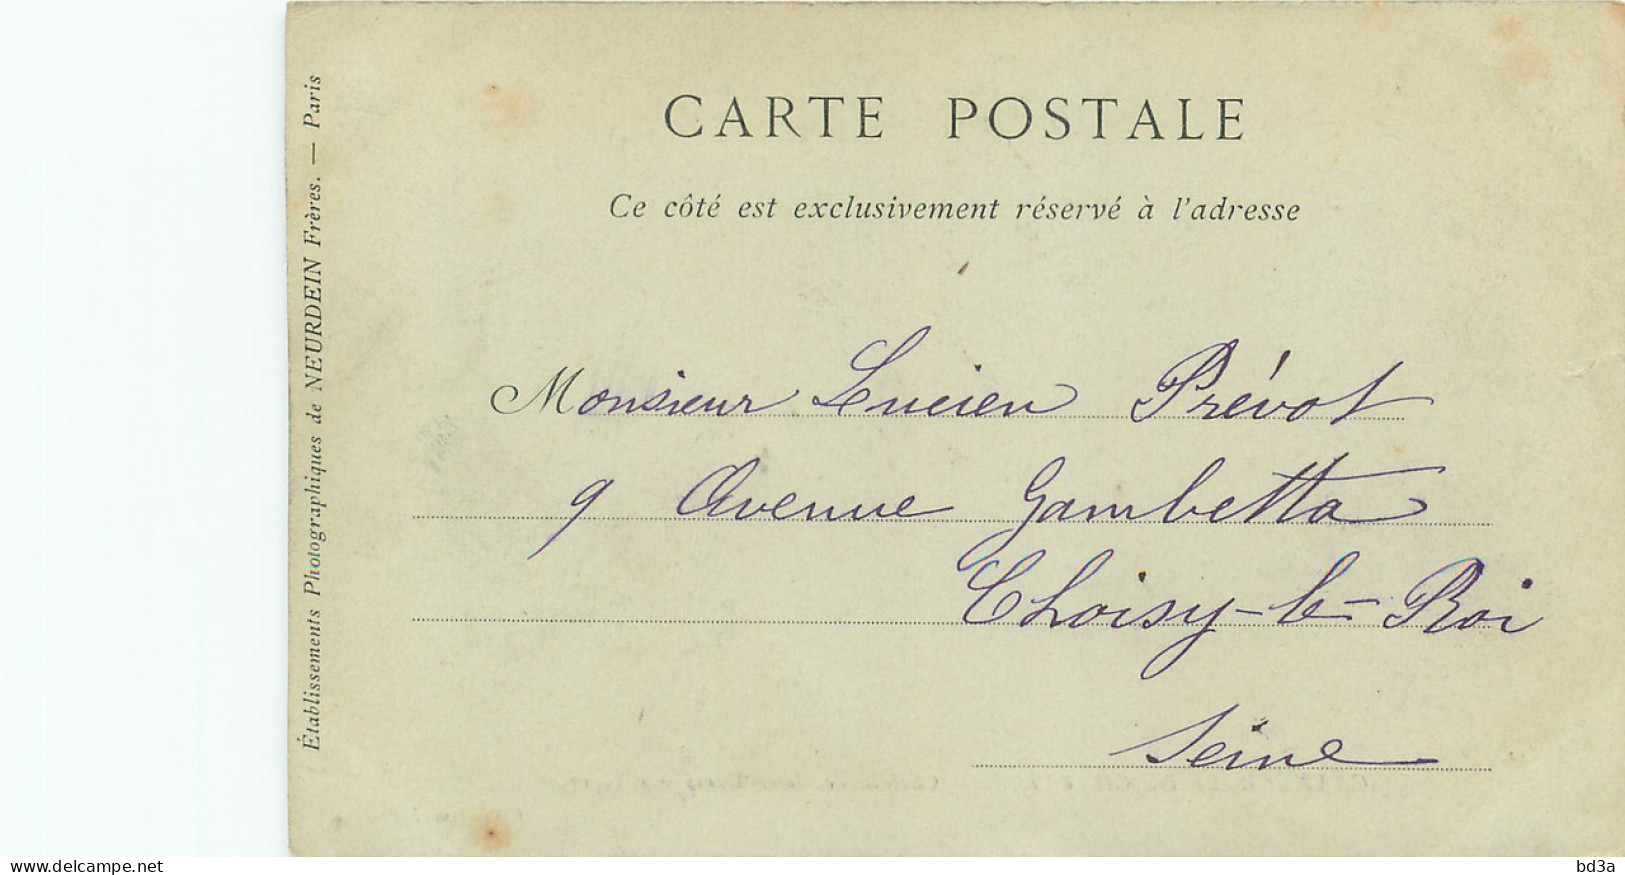 CARTE POSTALE
Ce côté est exclusivement réservé à l'adresse
Monsieur Lucien Prévot
9 Avenue Gambetta
Choisy-le-Roi
Seine
Établissements Photographiques de NEURDEIN Frères. — Paris
www.delcampe.net
bd3a